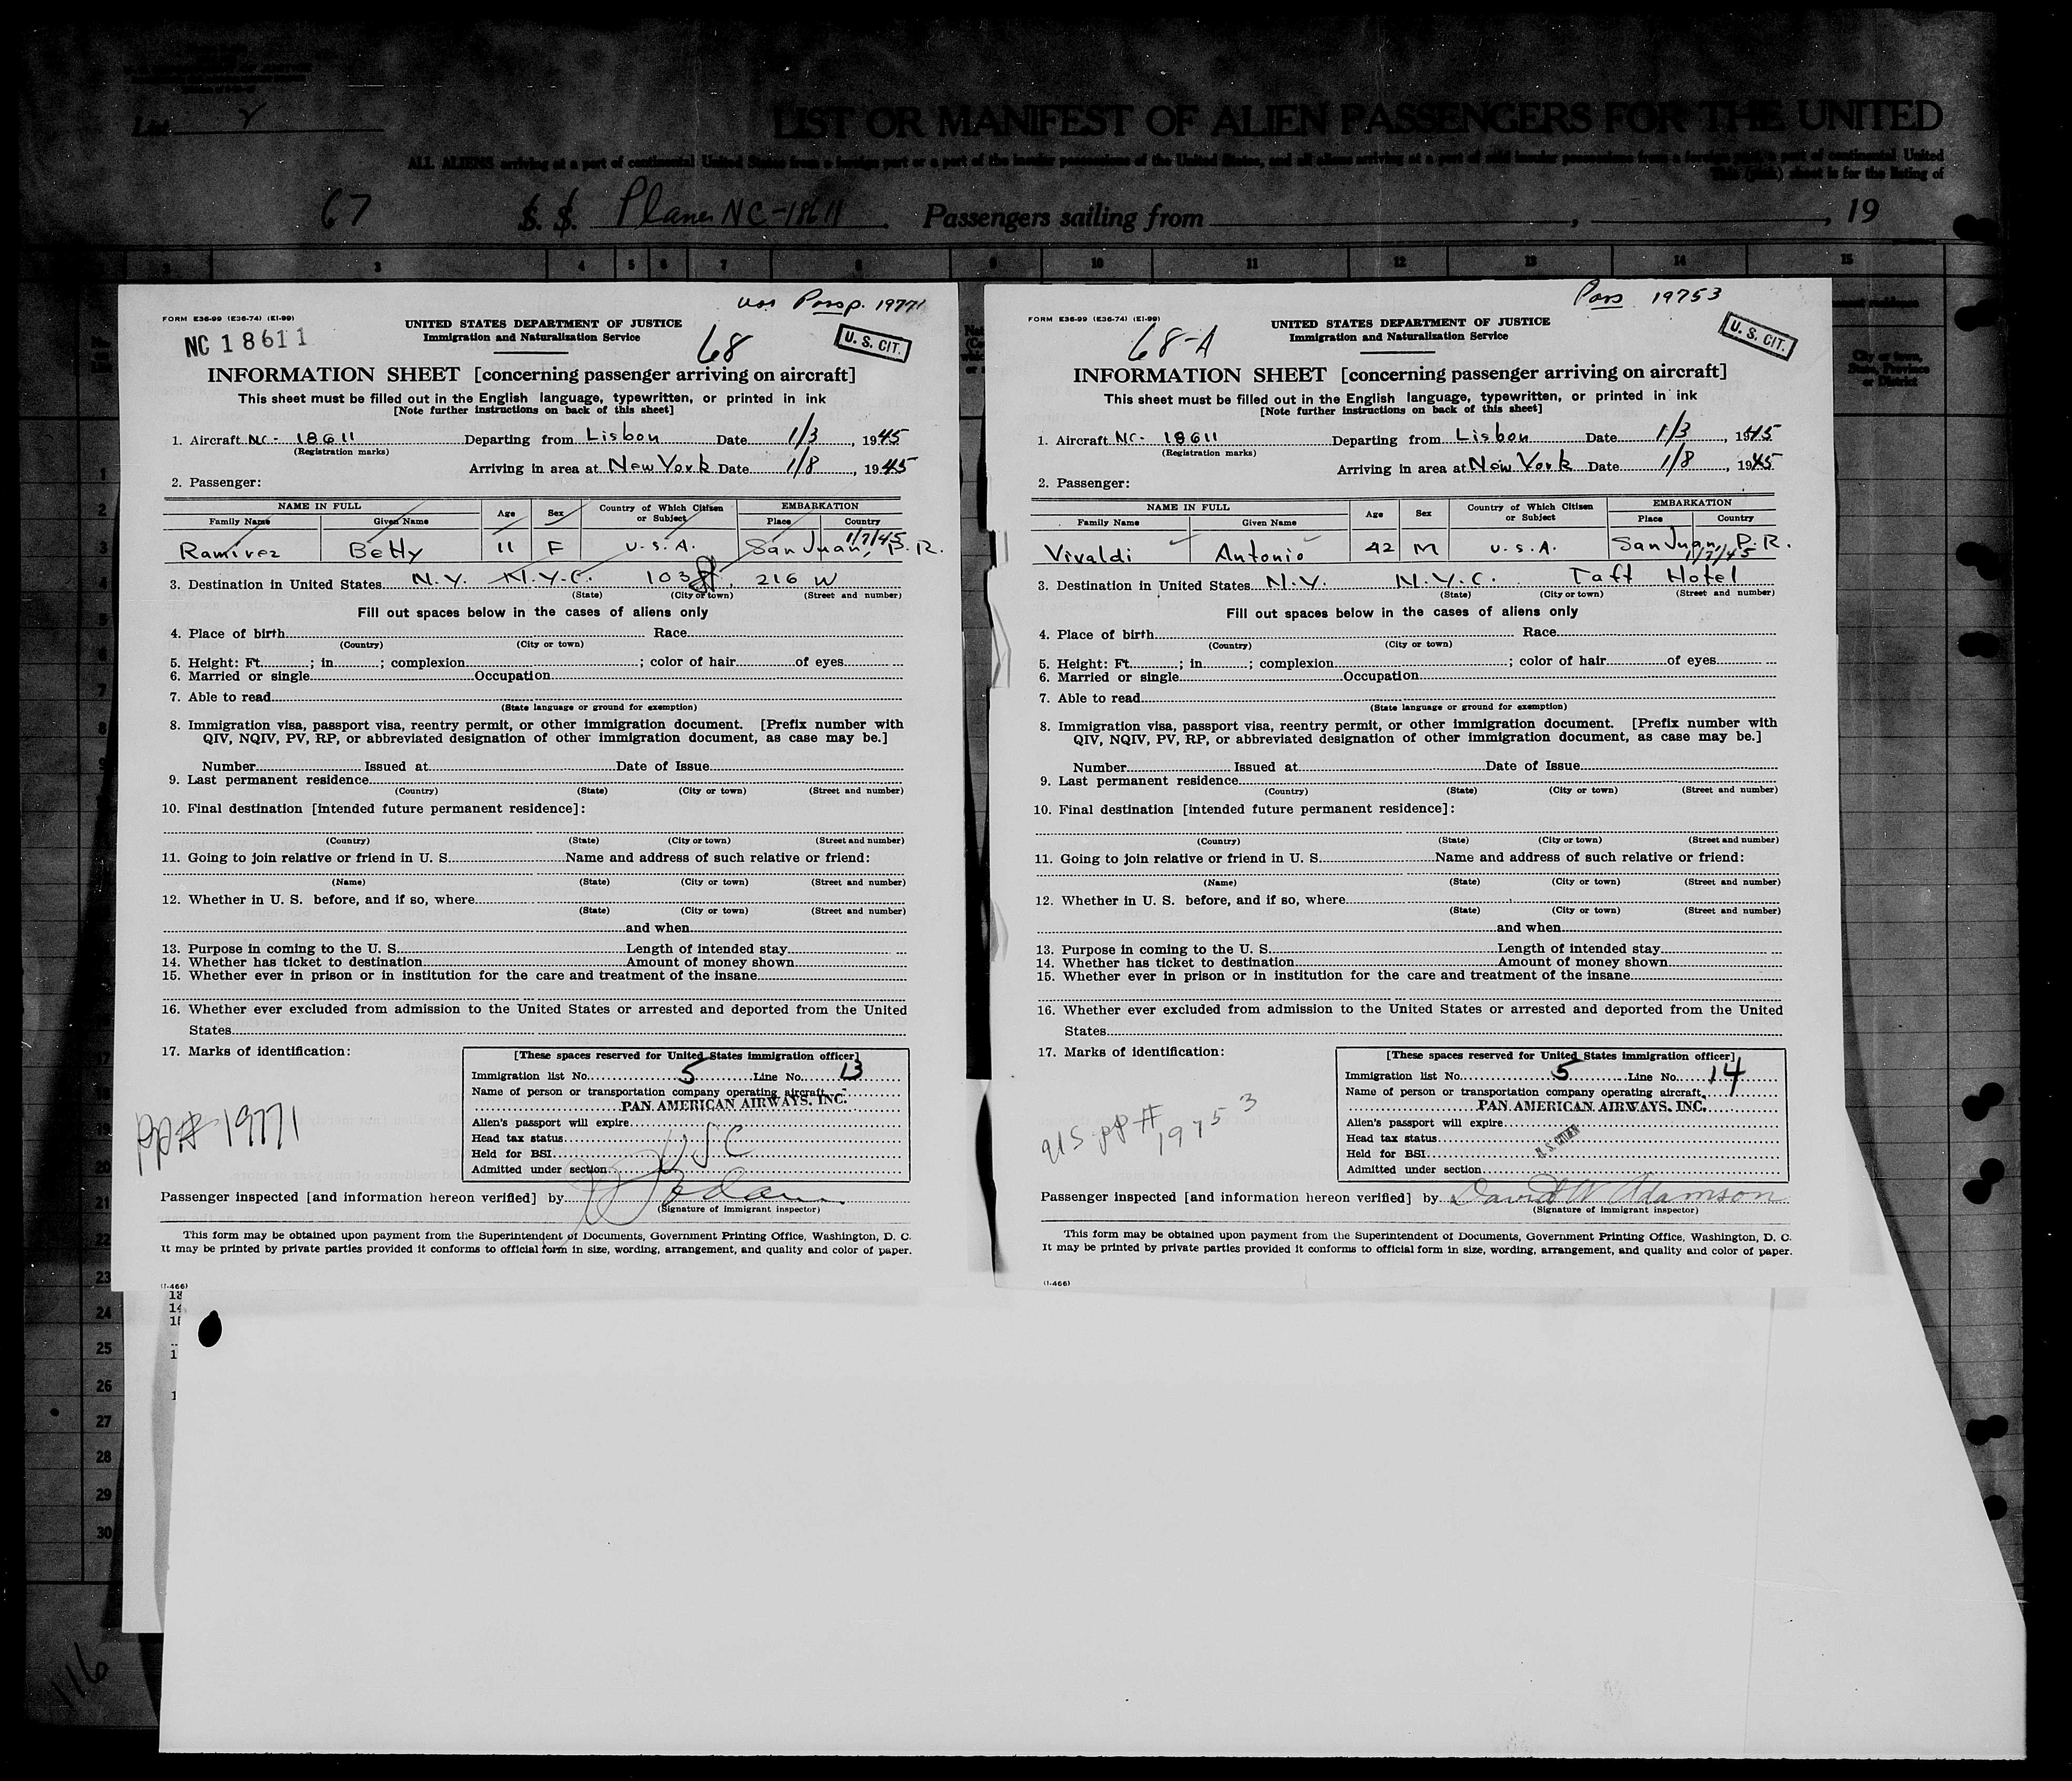 List 2
LIST OR MANIFEST OF ALIEN PASSENGERS FOR THE UNITED
ALL ALIENS arriving at a port of continental United States from a foreign port or a port of the insular possessions of the United States, and all aliens arriving at a port of said insular possessions from a foreign port, a port of continental United
This (pink) sheet is for the listing of
67 S. S. Plane NC-18611 Passengers sailing from , , 19
3 4 5 6 7 8 9 10 11 12 13 14 15
US Passp. 19771
FORM E36-99 (E36-74) (E1-99)
NC 18611
UNITED STATES DEPARTMENT OF JUSTICE
Immigration and Naturalization Service
68
U. S. CIT.
INFORMATION SHEET [concerning passenger arriving on aircraft]
This sheet must be filled out in the English language, typewritten, or printed in ink
[Note further instructions on back of this sheet]
1. Aircraft NC- 18611 Departing from Lisbon Date 1/3, 1945
(Registration marks)
Arriving in area at New York Date 1/8, 1945
2. Passenger:
NAME IN FULL Age Sex Country of Which Citizen or Subject EMBARKATION
Family Name Given Name Place Country
1/7/45
Ramirez Betty 11 F U.S.A. San Juan, P.R.
3. Destination in United States N.Y. N.Y.C. 103 216 W
(State) (City or town) (Street and number)
Fill out spaces below in the cases of aliens only
4. Place of birth Race
(Country) (City or town)
5. Height: Ft. ; in ; complexion ; color of hair of eyes
6. Married or single Occupation
7. Able to read
(State language or ground for exemption)
8. Immigration visa, passport visa, reentry permit, or other immigration document. [Prefix number with
QIV, NQIV, PV, RP, or abbreviated designation of other immigration document, as case may be.]
Number Issued at Date of Issue
9. Last permanent residence
(Country) (State) (City or town) (Street and number)
10. Final destination [intended future permanent residence]:
(Country) (State) (City or town) (Street and number)
11. Going to join relative or friend in U. S. Name and address of such relative or friend:
(Name) (State) (City or town) (Street and number)
12. Whether in U. S. before, and if so, where
(State) (City or town) (Street and number)
and when
13. Purpose in coming to the U. S. Length of intended stay
14. Whether has ticket to destination Amount of money shown
15. Whether ever in prison or in institution for the care and treatment of the insane
16. Whether ever excluded from admission to the United States or arrested and deported from the United
States
17. Marks of identification:
[These spaces reserved for United States immigration officer]
Immigration list No. 5 Line No. 13
Name of person or transportation company operating aircraft
PAN AMERICAN AIRWAYS, INC.
PP# 19771
Alien's passport will expire
Head tax status USC
Held for BSI
Admitted under section
Passenger inspected [and information hereon verified] by
(Signature of immigrant inspector)
This form may be obtained upon payment from the Superintendent of Documents, Government Printing Office, Washington, D. C.
It may be printed by private parties provided it conforms to official form in size, wording, arrangement, and quality and color of paper.
(I-466)
Pass 19753
FORM E36-99 (E36-74) (E1-99)
68-A
UNITED STATES DEPARTMENT OF JUSTICE
Immigration and Naturalization Service
U. S. CIT.
INFORMATION SHEET [concerning passenger arriving on aircraft]
This sheet must be filled out in the English language, typewritten, or printed in ink
[Note further instructions on back of this sheet]
1. Aircraft NC- 18611 Departing from Lisbon Date 1/3, 1945
(Registration marks)
Arriving in area at New York Date 1/8, 1945
2. Passenger:
NAME IN FULL Age Sex Country of Which Citizen or Subject EMBARKATION
Family Name Given Name Place Country
Vivaldi Antonio 42 M U.S.A. San Juan, P.R.
1/7/45
3. Destination in United States N.Y. N.Y.C. Taft Hotel
(State) (City or town) (Street and number)
Fill out spaces below in the cases of aliens only
4. Place of birth Race
(Country) (City or town)
5. Height: Ft. ; in ; complexion ; color of hair of eyes
6. Married or single Occupation
7. Able to read
(State language or ground for exemption)
8. Immigration visa, passport visa, reentry permit, or other immigration document. [Prefix number with
QIV, NQIV, PV, RP, or abbreviated designation of other immigration document, as case may be.]
Number Issued at Date of Issue
9. Last permanent residence
(Country) (State) (City or town) (Street and number)
10. Final destination [intended future permanent residence]:
(Country) (State) (City or town) (Street and number)
11. Going to join relative or friend in U. S. Name and address of such relative or friend:
(Name) (State) (City or town) (Street and number)
12. Whether in U. S. before, and if so, where
(State) (City or town) (Street and number)
and when
13. Purpose in coming to the U. S. Length of intended stay
14. Whether has ticket to destination Amount of money shown
15. Whether ever in prison or in institution for the care and treatment of the insane
16. Whether ever excluded from admission to the United States or arrested and deported from the United
States
17. Marks of identification:
[These spaces reserved for United States immigration officer]
Immigration list No. 5 Line No. 14
Name of person or transportation company operating aircraft
PAN AMERICAN AIRWAYS, INC.
US PP# 19753
Alien's passport will expire
Head tax status
U. S. CITIZEN
Held for BSI
Admitted under section
Passenger inspected [and information hereon verified] by David W Adamson
(Signature of immigrant inspector)
This form may be obtained upon payment from the Superintendent of Documents, Government Printing Office, Washington, D. C.
It may be printed by private parties provided it conforms to official form in size, wording, arrangement, and quality and color of paper.
(I-466)
City or town, State, Province or District
1
2
3
4
5
6
7
8
9
17
18
19
20
21
22
23
24
25
26
27
28
29
30
116